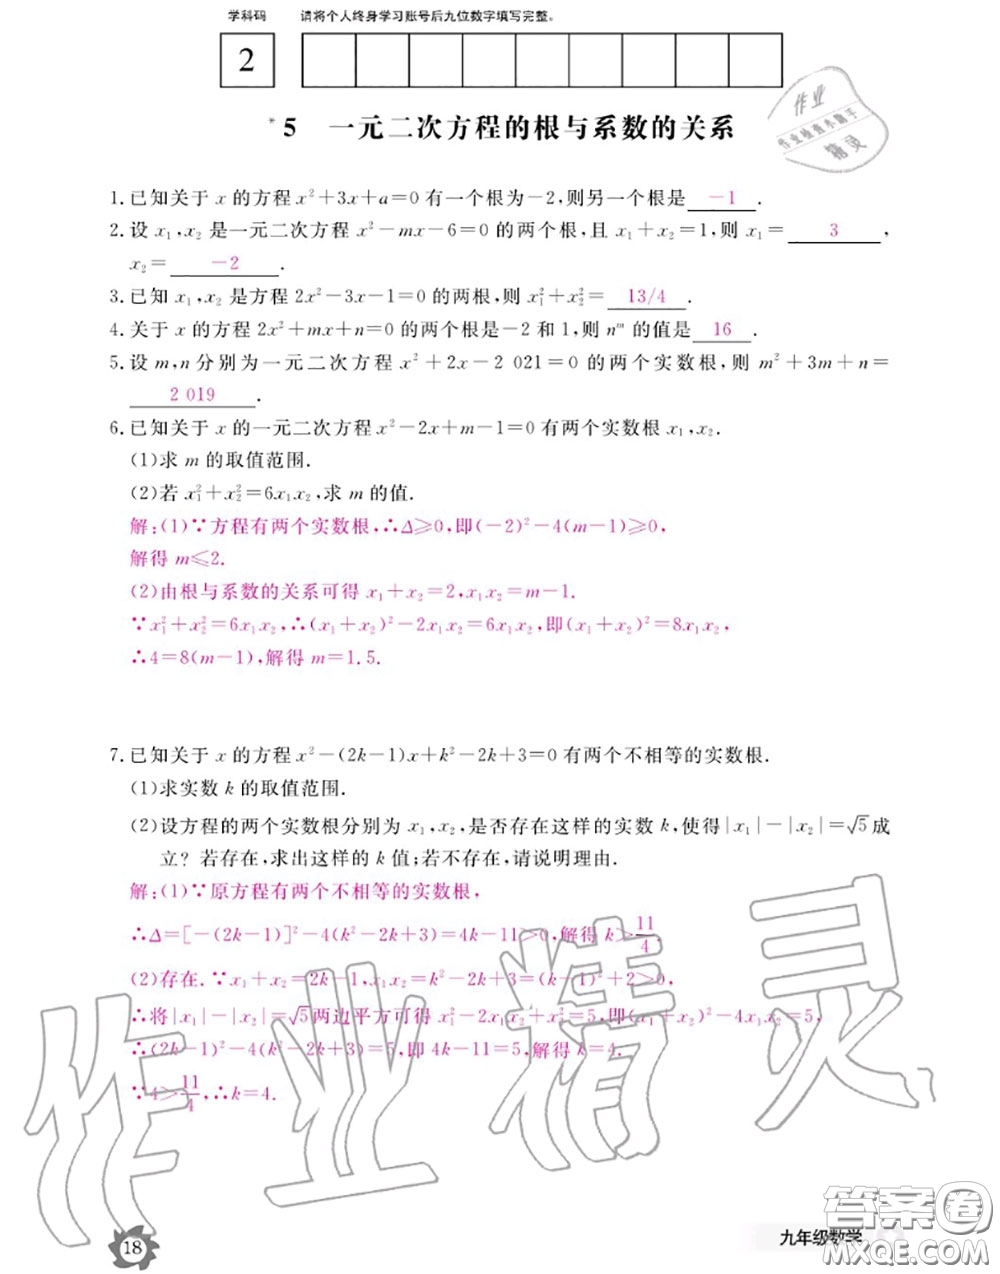 学科码 请将个人终身学习账号后九位数字填写完整。
2
*5 一元二次方程的根与系数的关系
作业
作业检查小助手
精灵
1.已知关于 x 的方程 x²+3x+a=0 有一个根为-2,则另一个根是 -1 .
2.设 x₁,x₂ 是一元二次方程 x²-mx-6=0 的两个根,且 x₁+x₂=1,则 x₁= 3 ,
x₂= -2 .
3.已知 x₁,x₂ 是方程 2x²-3x-1=0 的两根,则 x₁²+x₂²= 13/4 .
4.关于 x 的方程 2x²+mx+n=0 的两个根是-2 和 1,则 nᵐ 的值是 16 .
5.设 m,n 分别为一元二次方程 x²+2x-2 021=0 的两个实数根,则 m²+3m+n=
2 019 .
6.已知关于 x 的一元二次方程 x²-2x+m-1=0 有两个实数根 x₁,x₂.
(1)求 m 的取值范围.
(2)若 x₁²+x₂²=6x₁x₂,求 m 的值.
解:(1)∵方程有两个实数根,∴Δ≥0,即(-2)²-4(m-1)≥0,
解得 m≤2.
(2)由根与系数的关系可得 x₁+x₂=2,x₁x₂=m-1.
∵x₁²+x₂²=6x₁x₂,∴(x₁+x₂)²-2x₁x₂=6x₁x₂,即(x₁+x₂)²=8x₁x₂,
∴4=8(m-1),解得 m=1.5.
7.已知关于 x 的方程 x²-(2k-1)x+k²-2k+3=0 有两个不相等的实数根.
(1)求实数 k 的取值范围.
(2)设方程的两个实数根分别为 x₁,x₂,是否存在这样的实数 k,使得|x₁|-|x₂|=√5成
立?若存在,求出这样的 k 值;若不存在,请说明理由.
解:(1)∵原方程有两个不相等的实数根,
∴Δ=[-(2k-1)]²-4(k²-2k+3)=4k-11>0,解得 k>11/4.
(2)存在.∵x₁+x₂=2k-1,x₁x₂=k²-2k+3=(k-1)²+2>0,
∴将|x₁|-|x₂|=√5两边平方可得 x₁²-2x₁x₂+x₂²=5,即(x₁+x₂)²-4x₁x₂=5,
∴(2k-1)²-4(k²-2k+3)=5,即 4k-11=5,解得 k=4.
∵4>11/4,∴k=4.
作业精灵
18
九年级数学
答案卷
MXQE.COM